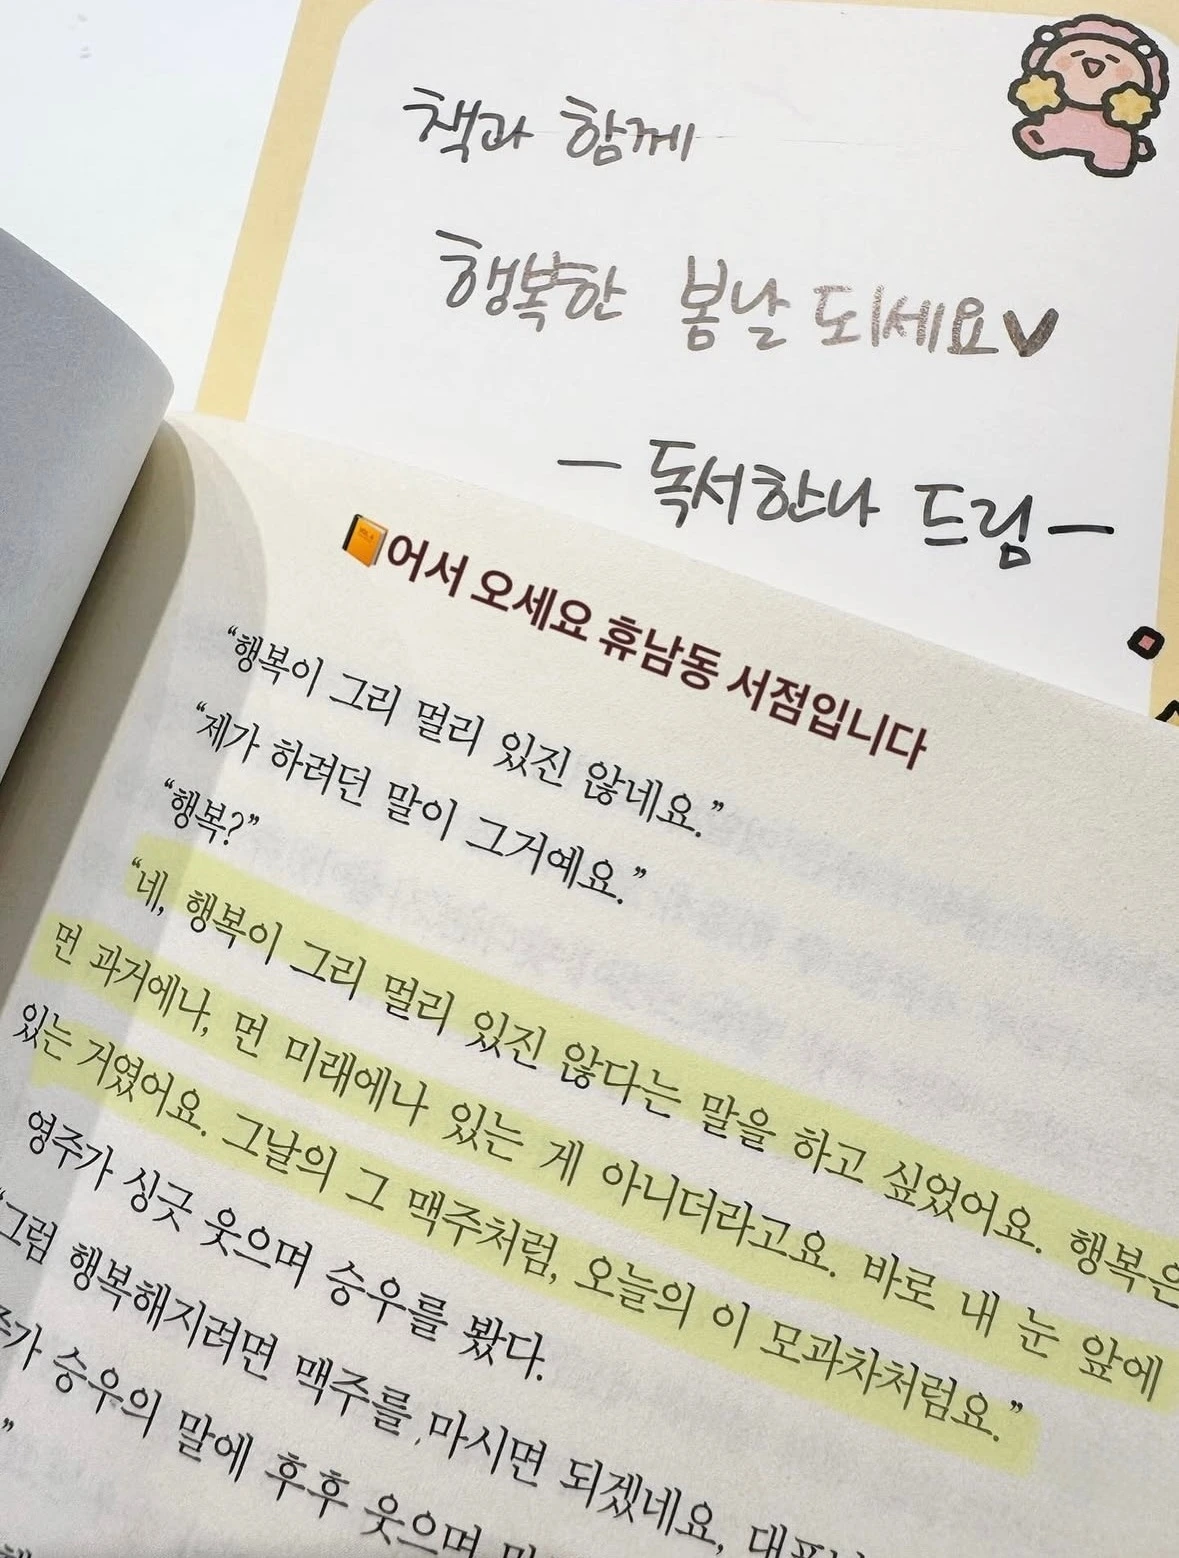 책과 함께
행복한 봄날 되세요♥
- 독서한나 드림 -
어서 오세요 휴남동 서점입니다
“행복이 그리 멀리 있진 않네요.”
“제가 하려던 말이 그거예요.”
“행복?”
“네, 행복이 그리 멀리 있진 않다는 말을 하고 싶었어요. 행복은
먼 과거에나, 먼 미래에나 있는 게 아니더라고요. 바로 내 눈 앞에
있는 거였어요. 그날의 그 맥주처럼, 오늘의 이 모과차처럼요.”
영주가 싱긋 웃으며 승우를 봤다.
“그럼 행복해지려면 맥주를 마시면 되겠네요,
승우의 말에 후후 웃으며